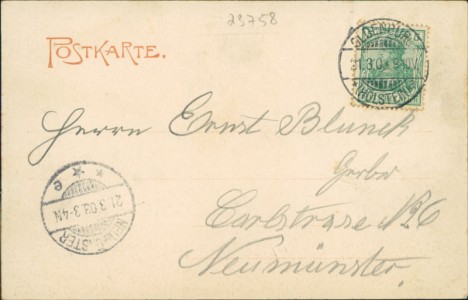 23758
POSTKARTE.
OLDENBURG
21.3.03. 8-9V
(HOLSTEIN)
Herrn Ernst Blunck
Gerber
Carlstrase No 6
Neumünster.
* * e
21.3.03.3-4N
NEUMÜNSTER